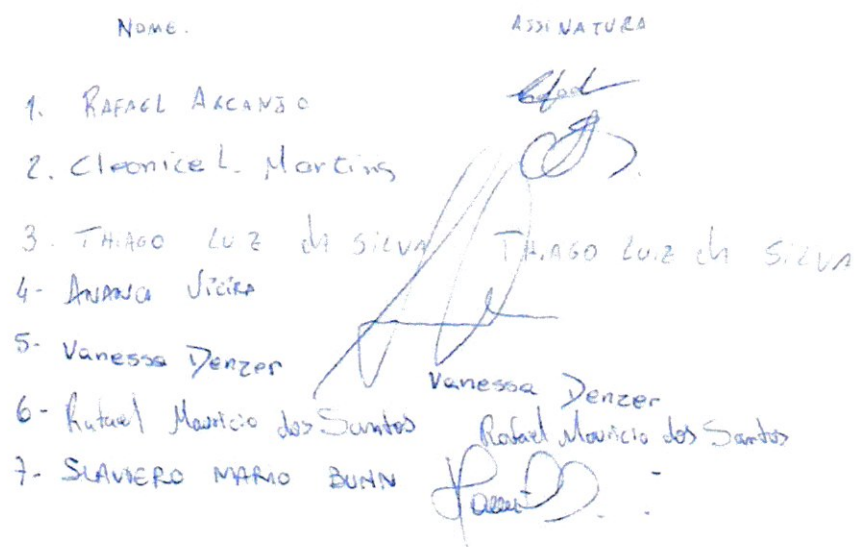 NOME. ASSINATURA
1. RAFAEL ARCANJO
2. Cleonice L. Martins
3. THIAGO LUIZ da SILVA THIAGO LUIZ da SILVA
4- Vieira
5- Vanessa Denzer Vanessa Denzer
6- Rafael Mauricio dos Santos Rafael Mauricio dos Santos
7- SLAVIERO MARIO BUNN